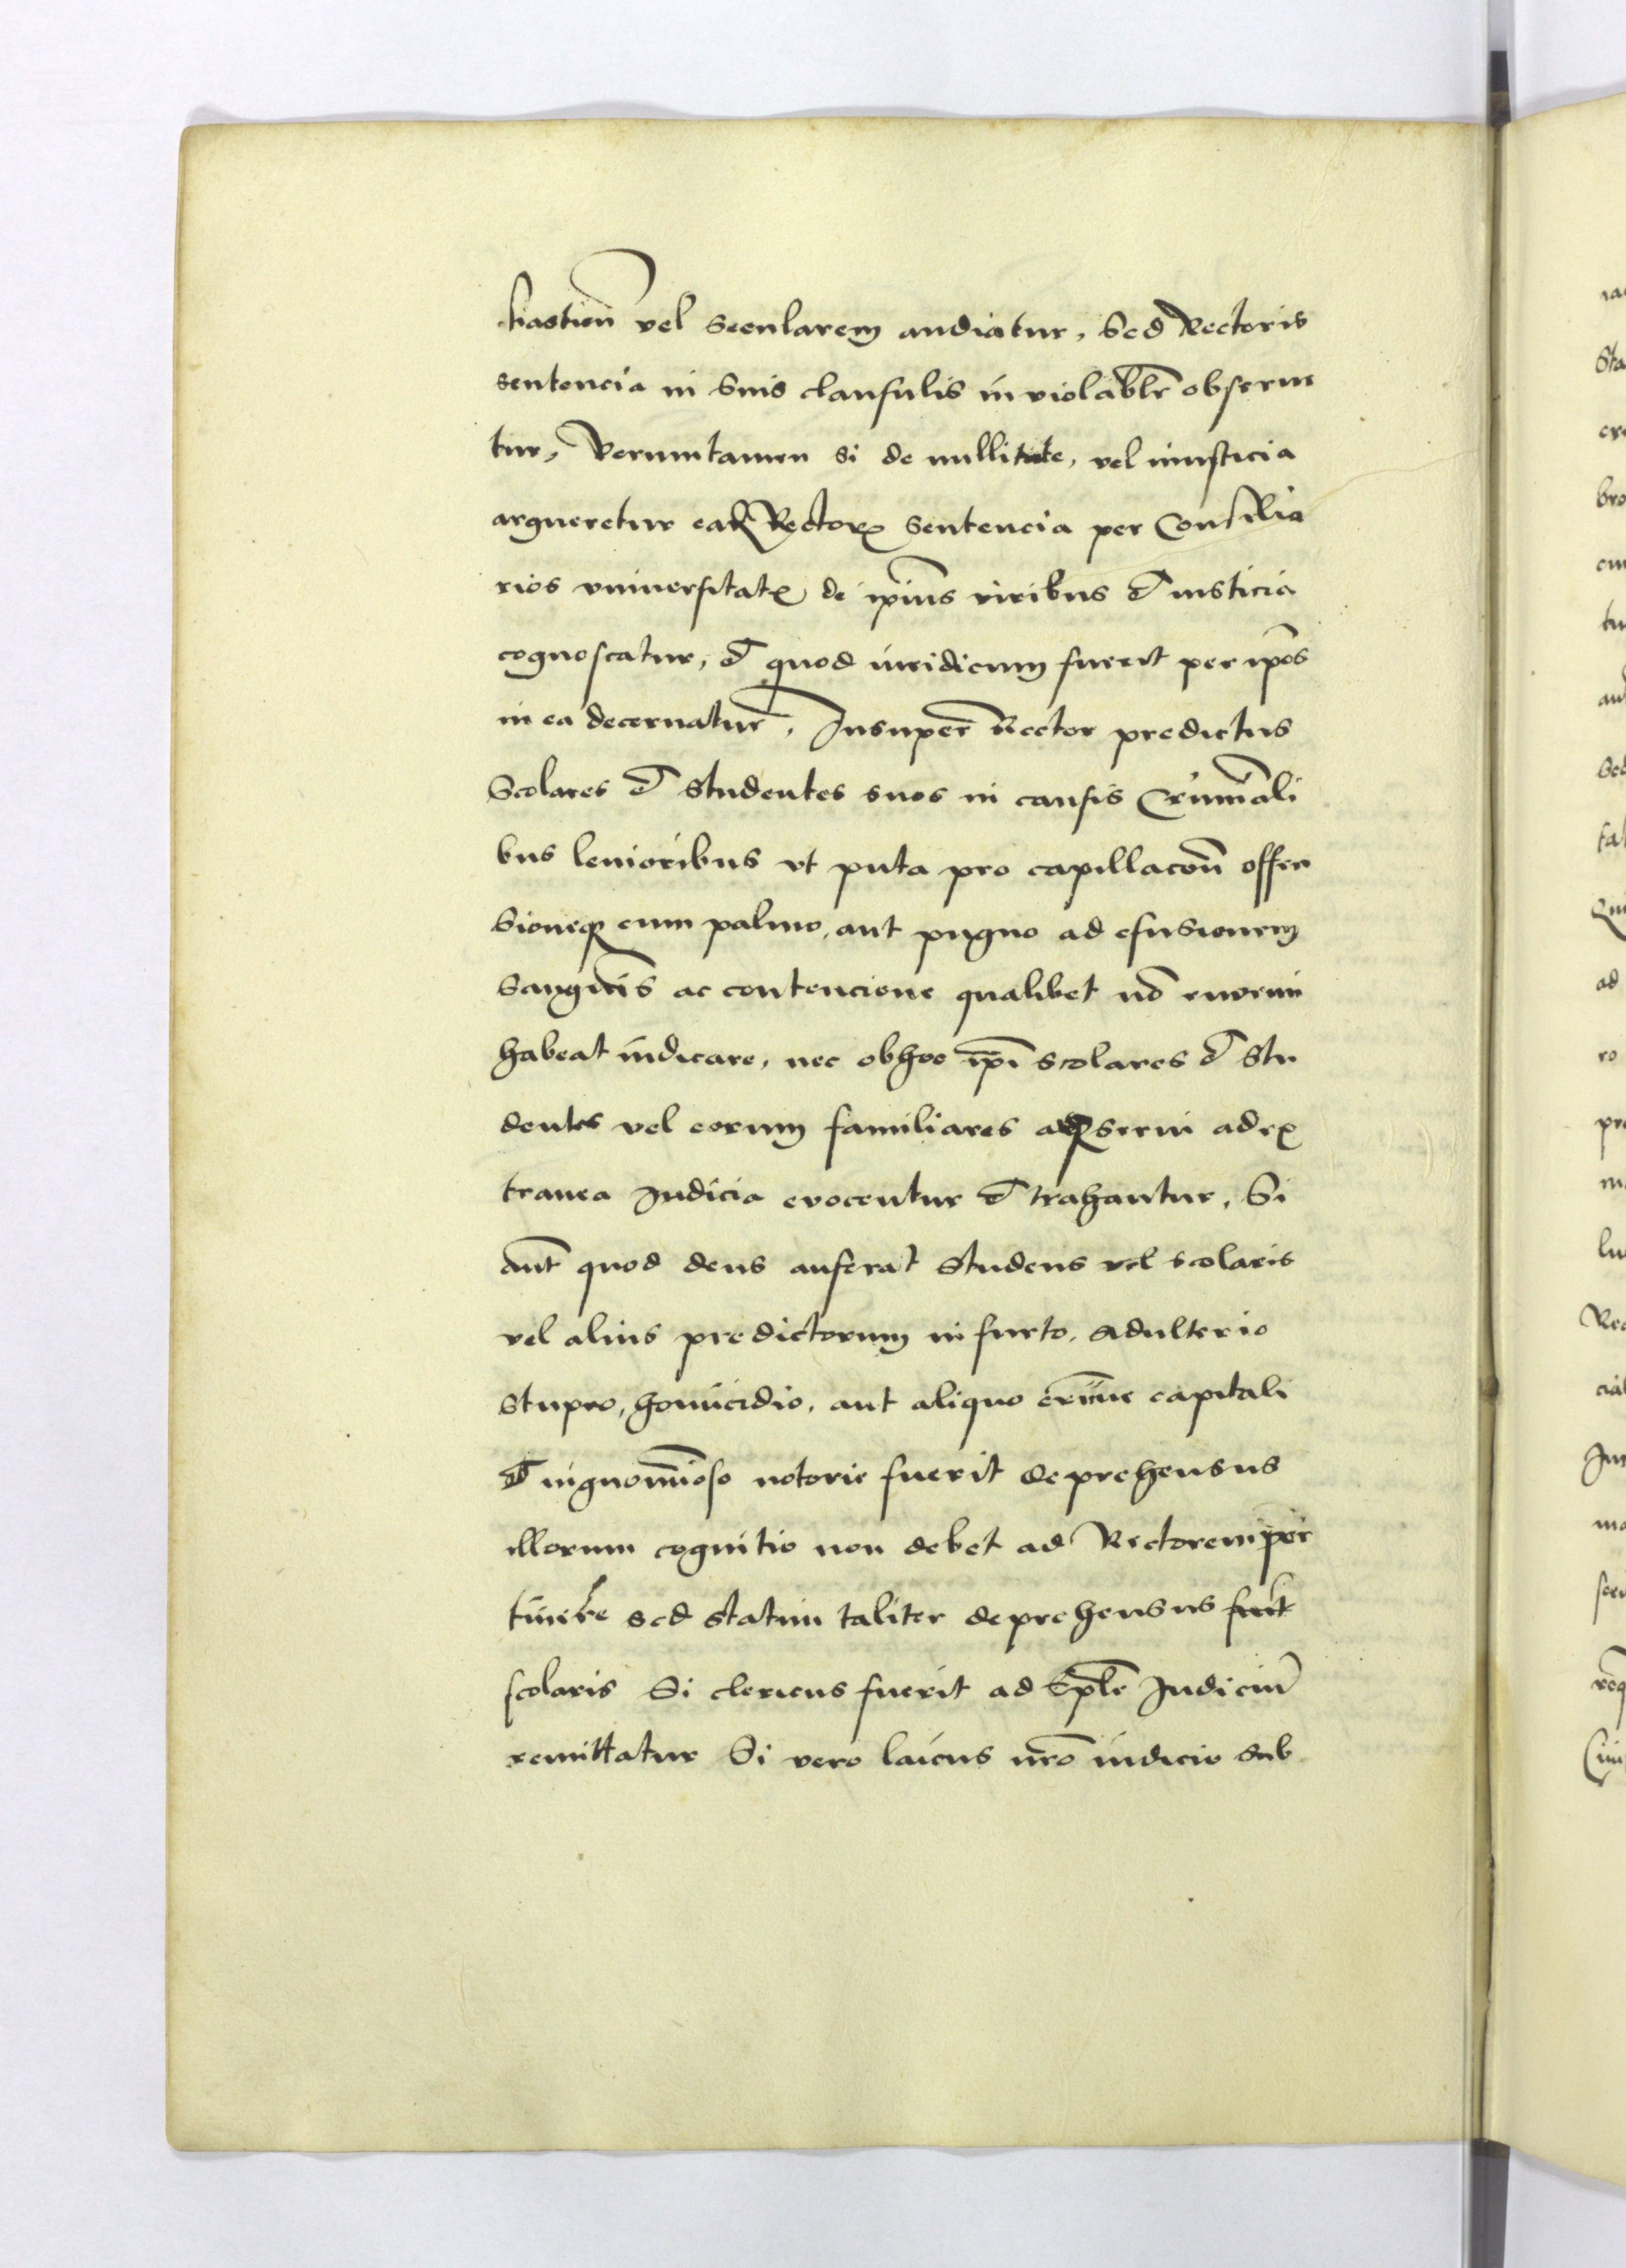 siasticum vel Secularem audiatur, Sed Rectoris
sentencia in Suis clausulis inviolablr obserue
tur, Verumtamen si de nullitate, vel iniusticia
argueretur Rectoris Sentencia per Consilia
rios vniuersitatis de ipius viribus et iusticia
cognoscatur, et quod iuridicum fuerit per ipos
in ea decernatur, Insuper Rector predictus
Scolares et Studentes suos in causis Criminali
bus leuioribus vt puta pro capillacōn offen
sioneque cum palmo, aut pugno ad efusionem
sanguīs ac contencione qualibet nō enormi
habeat iudicare, nec obhoc ipī scolares et Stu
dentes vel eorum familiares serui ad ex
tranea Iudicia euocentur et trahantur, Si
aut quod deus auferat Studens vel scolaris
vel alius predictorum in furto, Adulterio
Stupro, homicidio, aut aliquo crimīe capitali
et ingnomīoso notorie fuerit deprehensus
illorum cognitio non debet ad Rectorem per
tinere sed statim taliter deprehensus
scolaris Si clericus fuerit ad Epīle Iudiciū
remittatur Si vero laicus nrō iudicio sub